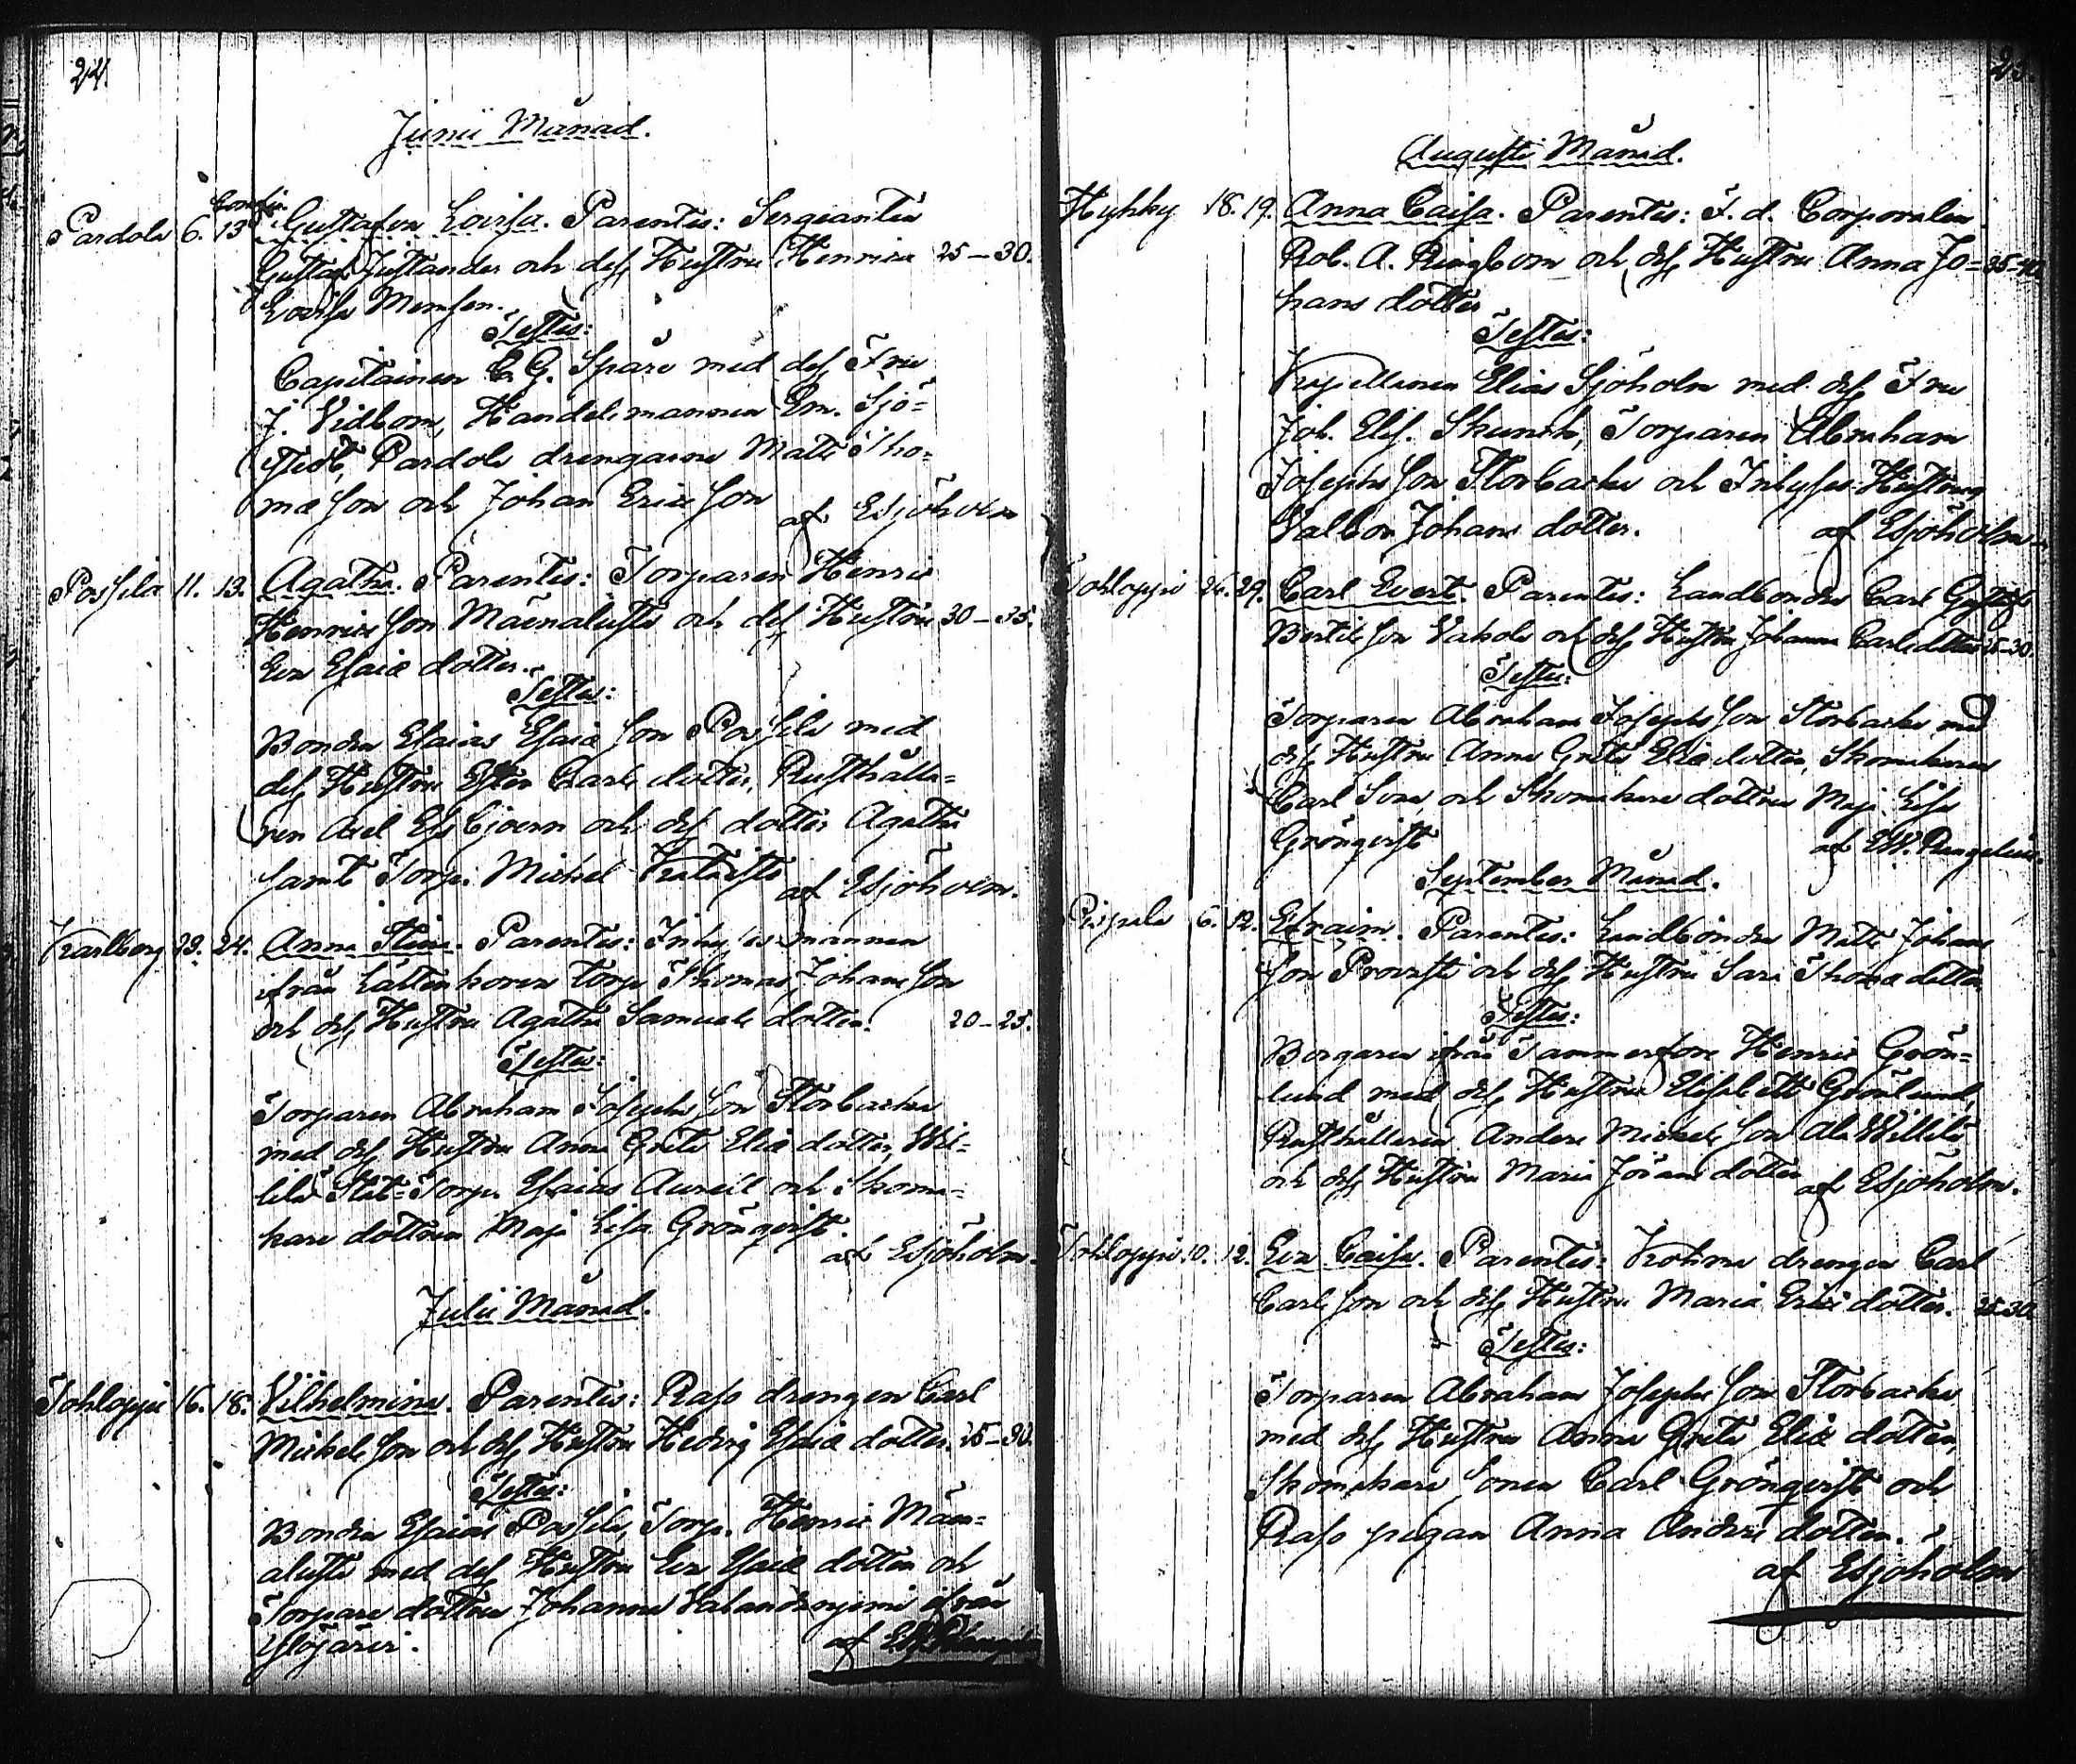 24.
Junii Månad.
Pardola 6. 13 Gustafva Lovisa. Parentes: Sergeanten
Gustaf Justander och dess Hustru Henrica 25–30.
Lovisa Monsen.
Testes:
Capitainen C. G. Spåre med dess Fru
J. Vidbom, Handelsmannen Em. Sjö=
stedt, Pardola drengarne Matts Tho=
mæ Son och Johan Ericsson
af ESjöholm
Possila 11. 13. Agatha. Parentes: Torparen Henric
Henrics Son Mäenalusta och dess Hustru 30–35.
Eva Esaiæ dotter.
Testes:
Bonden Esaias Esaiæ Son Possila med
dess Hustru Ester Carls dotter, Rusthålla=
ren Axel Essbjoern och dess dotter Agatha
samt Torp. Michel
af ESjöholm.
Karlberg 23. 24. Anna Stina. Parentes: Inhyses mannen
ifrån torp Thomas Johans Son
och dess Hustru Agatha Samuels dotter. 20–25.
Testes:
Torparen Abraham Josephs Son Storbacka
med dess Hustru Anna Greta Eliæ dotter, Wil=
lilä Torp. Esaias Aurell och Skoma=
kare dottren Maja Lisa Grönqvist.
af ESjöholm.
Julii Månad.
Tohloppi 16. 18. Vilhelmina. Parentes: Raso drengen Carl
Michels Son och dess Hustru Hedvig Esaiæ dotter. 25–30.
Testes:
Bonden Esaias Possila, Torp. Henric Mäen=
alusta med dess Hustru Eva Esaiæ dotter och
Torpare dottren Johanna ifrån
Ylöjärvi.
af
Augusti Månad.
Hyhky 18. 19. Anna Caisa. Parentes: F. d. Corporalen
Rob. A. Ringbom och dess Hustru Anna Jo= 35–40
hans dotter
Testes:
Kapellanen Elias Sjöholm med dess Fru
Joh. Elis. Skunck, Torparen Abraham
Josephs Son Storbacka och Inhyses Hustrun
Valbor Johans dotter.
af ESjöholm.
Tohloppi 26. 29. Carl Evert. Parentes: Landbonden Carl Gustaf
Bertils Son Vahola och dess Hustru Johanna Carls dotter 25–30.
Testes:
Torparen Abraham Josephs Son Storbacka med
dess Hustru Anna Greta Eliæ dotter, Skomakaren
Carl Sven och Skomakare dottren Maja Lisa
Grönqvist
af
September Månad.
Pispala 6. 12. Efraim. Parentes: Landbonden Matts Johans
Son Provasti och dess Hustru Sara Thomæ dotter
Testes:
Borgaren ifrån Tammerfors Henric Grön=
lund med dess Hustru Elisabeth Grönlund,
Rusthållaren Anders Michels Son Ala Willilä
och dess Hustru Maria Jörans dotter
af ESjöholm.
Tohloppi 10. 12. Eva Caisa. Parentes: Krohna drengen Carl
Carls Son och dess Hustru Maria Erics dotter. 25–30.
Testes:
Torparen Abraham Josephs Son Storbacka
med dess Hustru Anna Greta Eliæ dotter,
Skomakare Sonen Carl Grönqvist och
Raso pigan Anna Anders dotter.
af ESjöholm